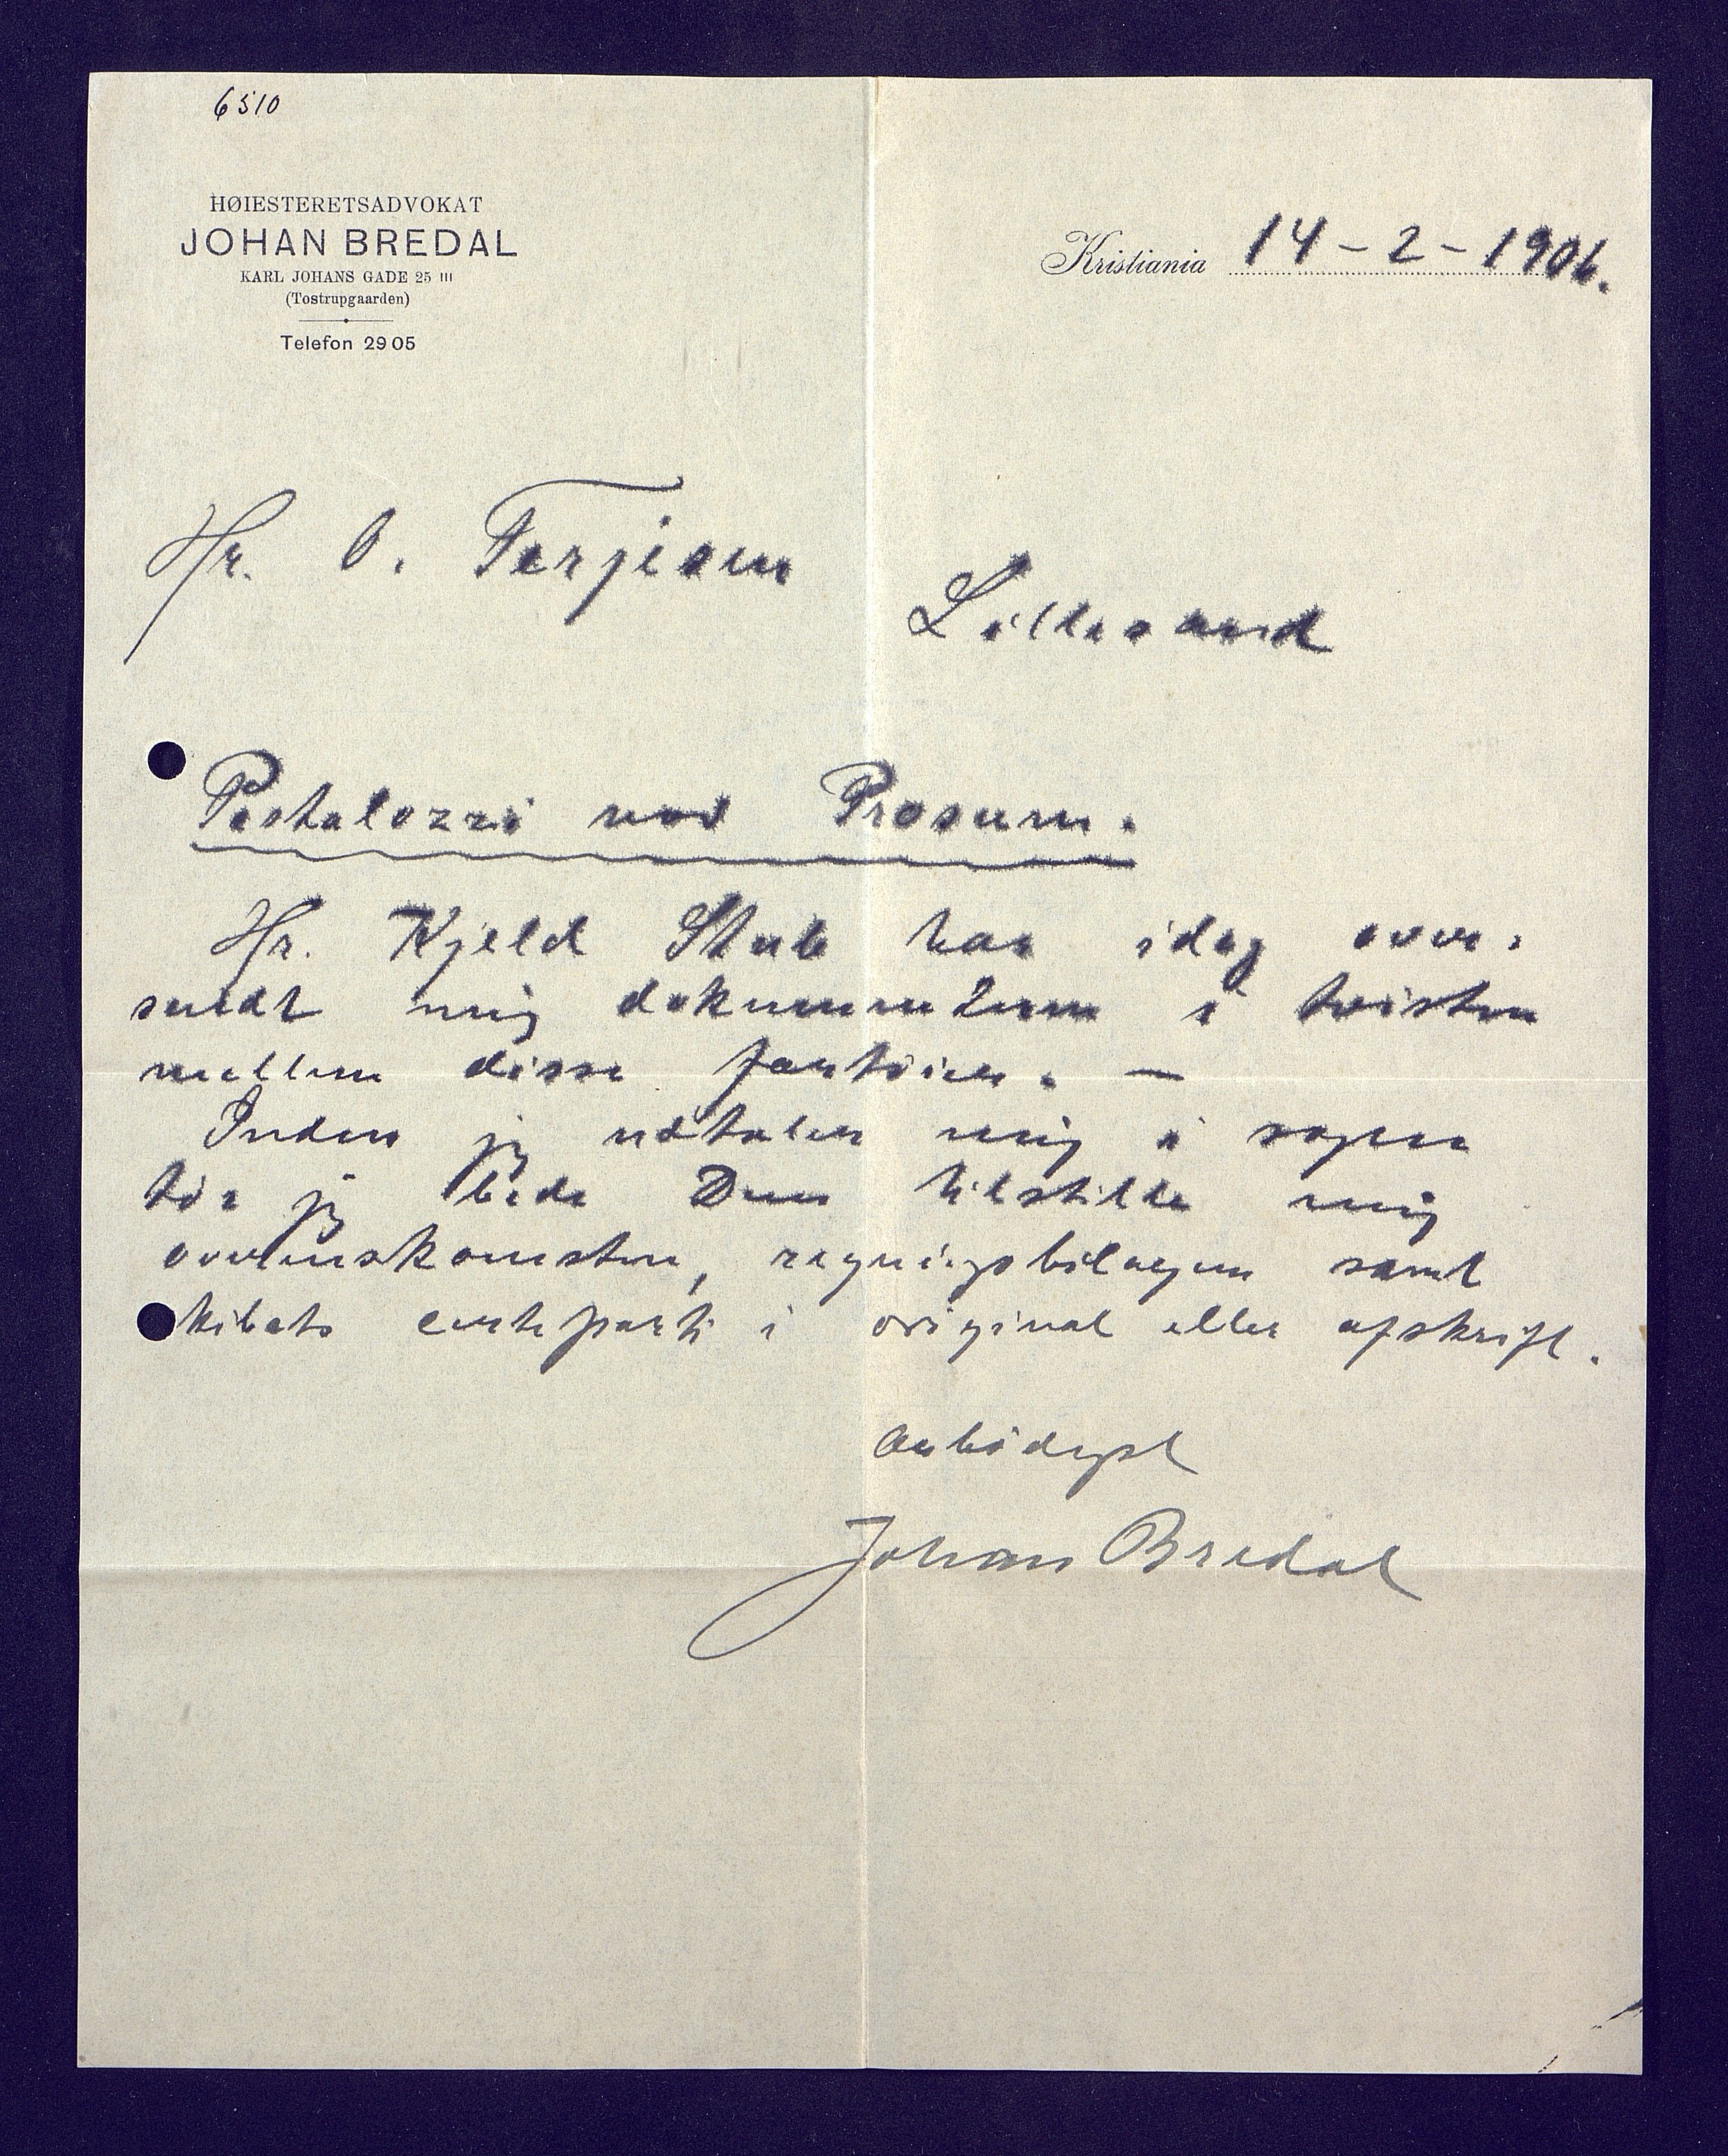 6510
HØIESTERETSADVOKAT
JOHAN BREDAL
KARL JOHANS GADE 25 III
(Tostrupgaarden)
Telefon 2905
Kristiania 14-2-1906.
Hr. O. Terjesen
Lillesand
Pestalozzi mod Prosum.
Hr. Kjeld Stub har idag over-
sendt mig dokumenterne i tvisten
mellem disse fartøier. —
Inden jeg udtaler mig i sagen
tør jeg bede Dem tilstille mig
overenskomsten, regningsbilagene samt
skibets certeparti i original eller afskrift.
Ærbødigst
Johan Bredal